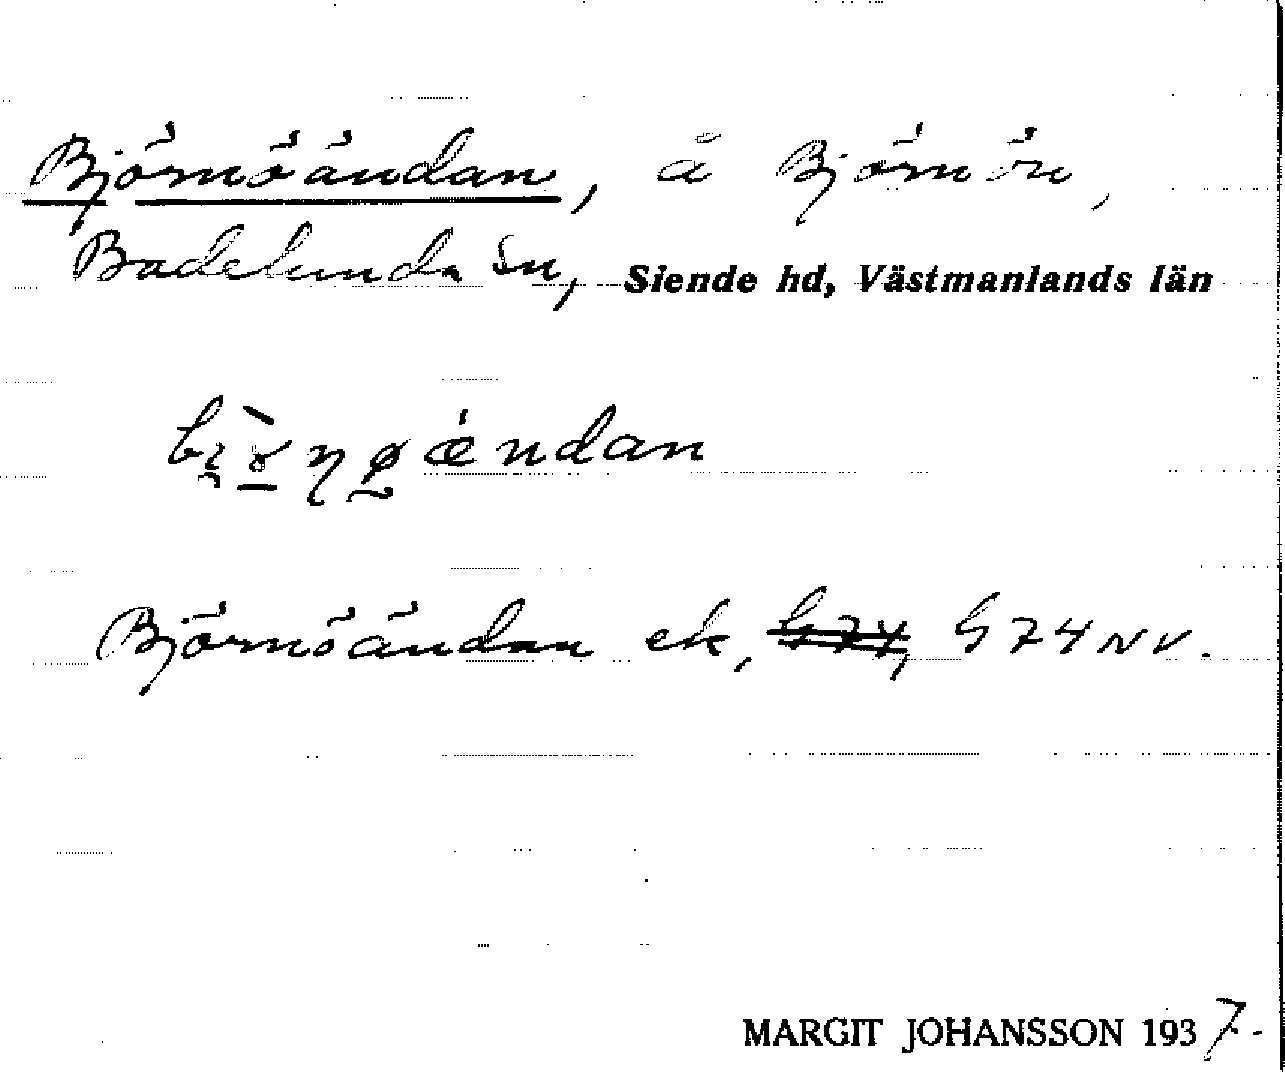 Björnöändan, å Björnön,
Badelunda sn, Siende hd, Västmanlands län
Björnöändan ek, G74, G74NV.
MARGIT JOHANSSON 1937-